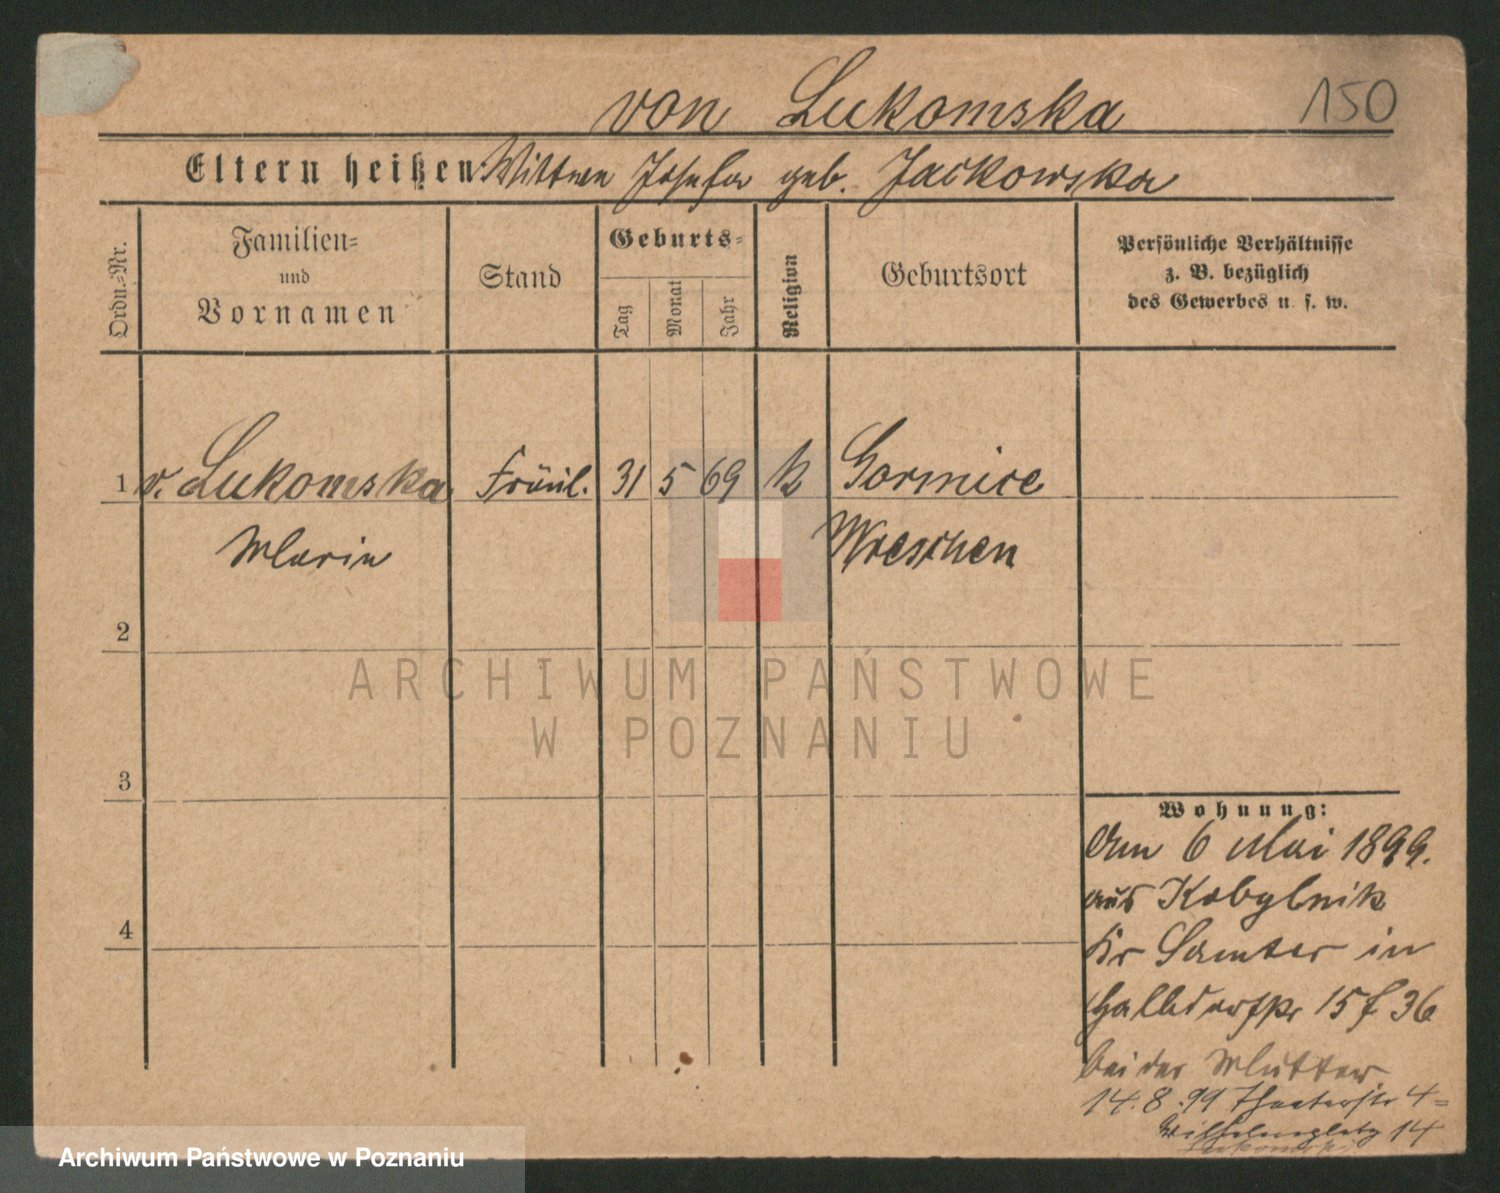 150
von Lukomska
Eltern heißen: Wittwe Josefa geb. Jackowska
Ordn.=Nr.
Familien=
und
Vornamen
Stand
Geburts=
Tag
Monat
Jahr
Religion
Geburtsort
Persönliche Verhältnisse
z. B. bezüglich
des Gewerbes u. s. w.
1 v. Lukomska Fräul. 31 5 69 k Gormice
Marie Wreschen
2
3
4
Wohnung:
Am 6 Mai 1899.
aus Kobylnik
Kr Samter in
Halbdorfstr 15 f 36
bei der Mutter
14.8.99 Theaterstr 4=
Wilhelmsplatz 14
ARCHIWUM PAŃSTWOWE
W POZNANIU
Archiwum Państwowe w Poznaniu